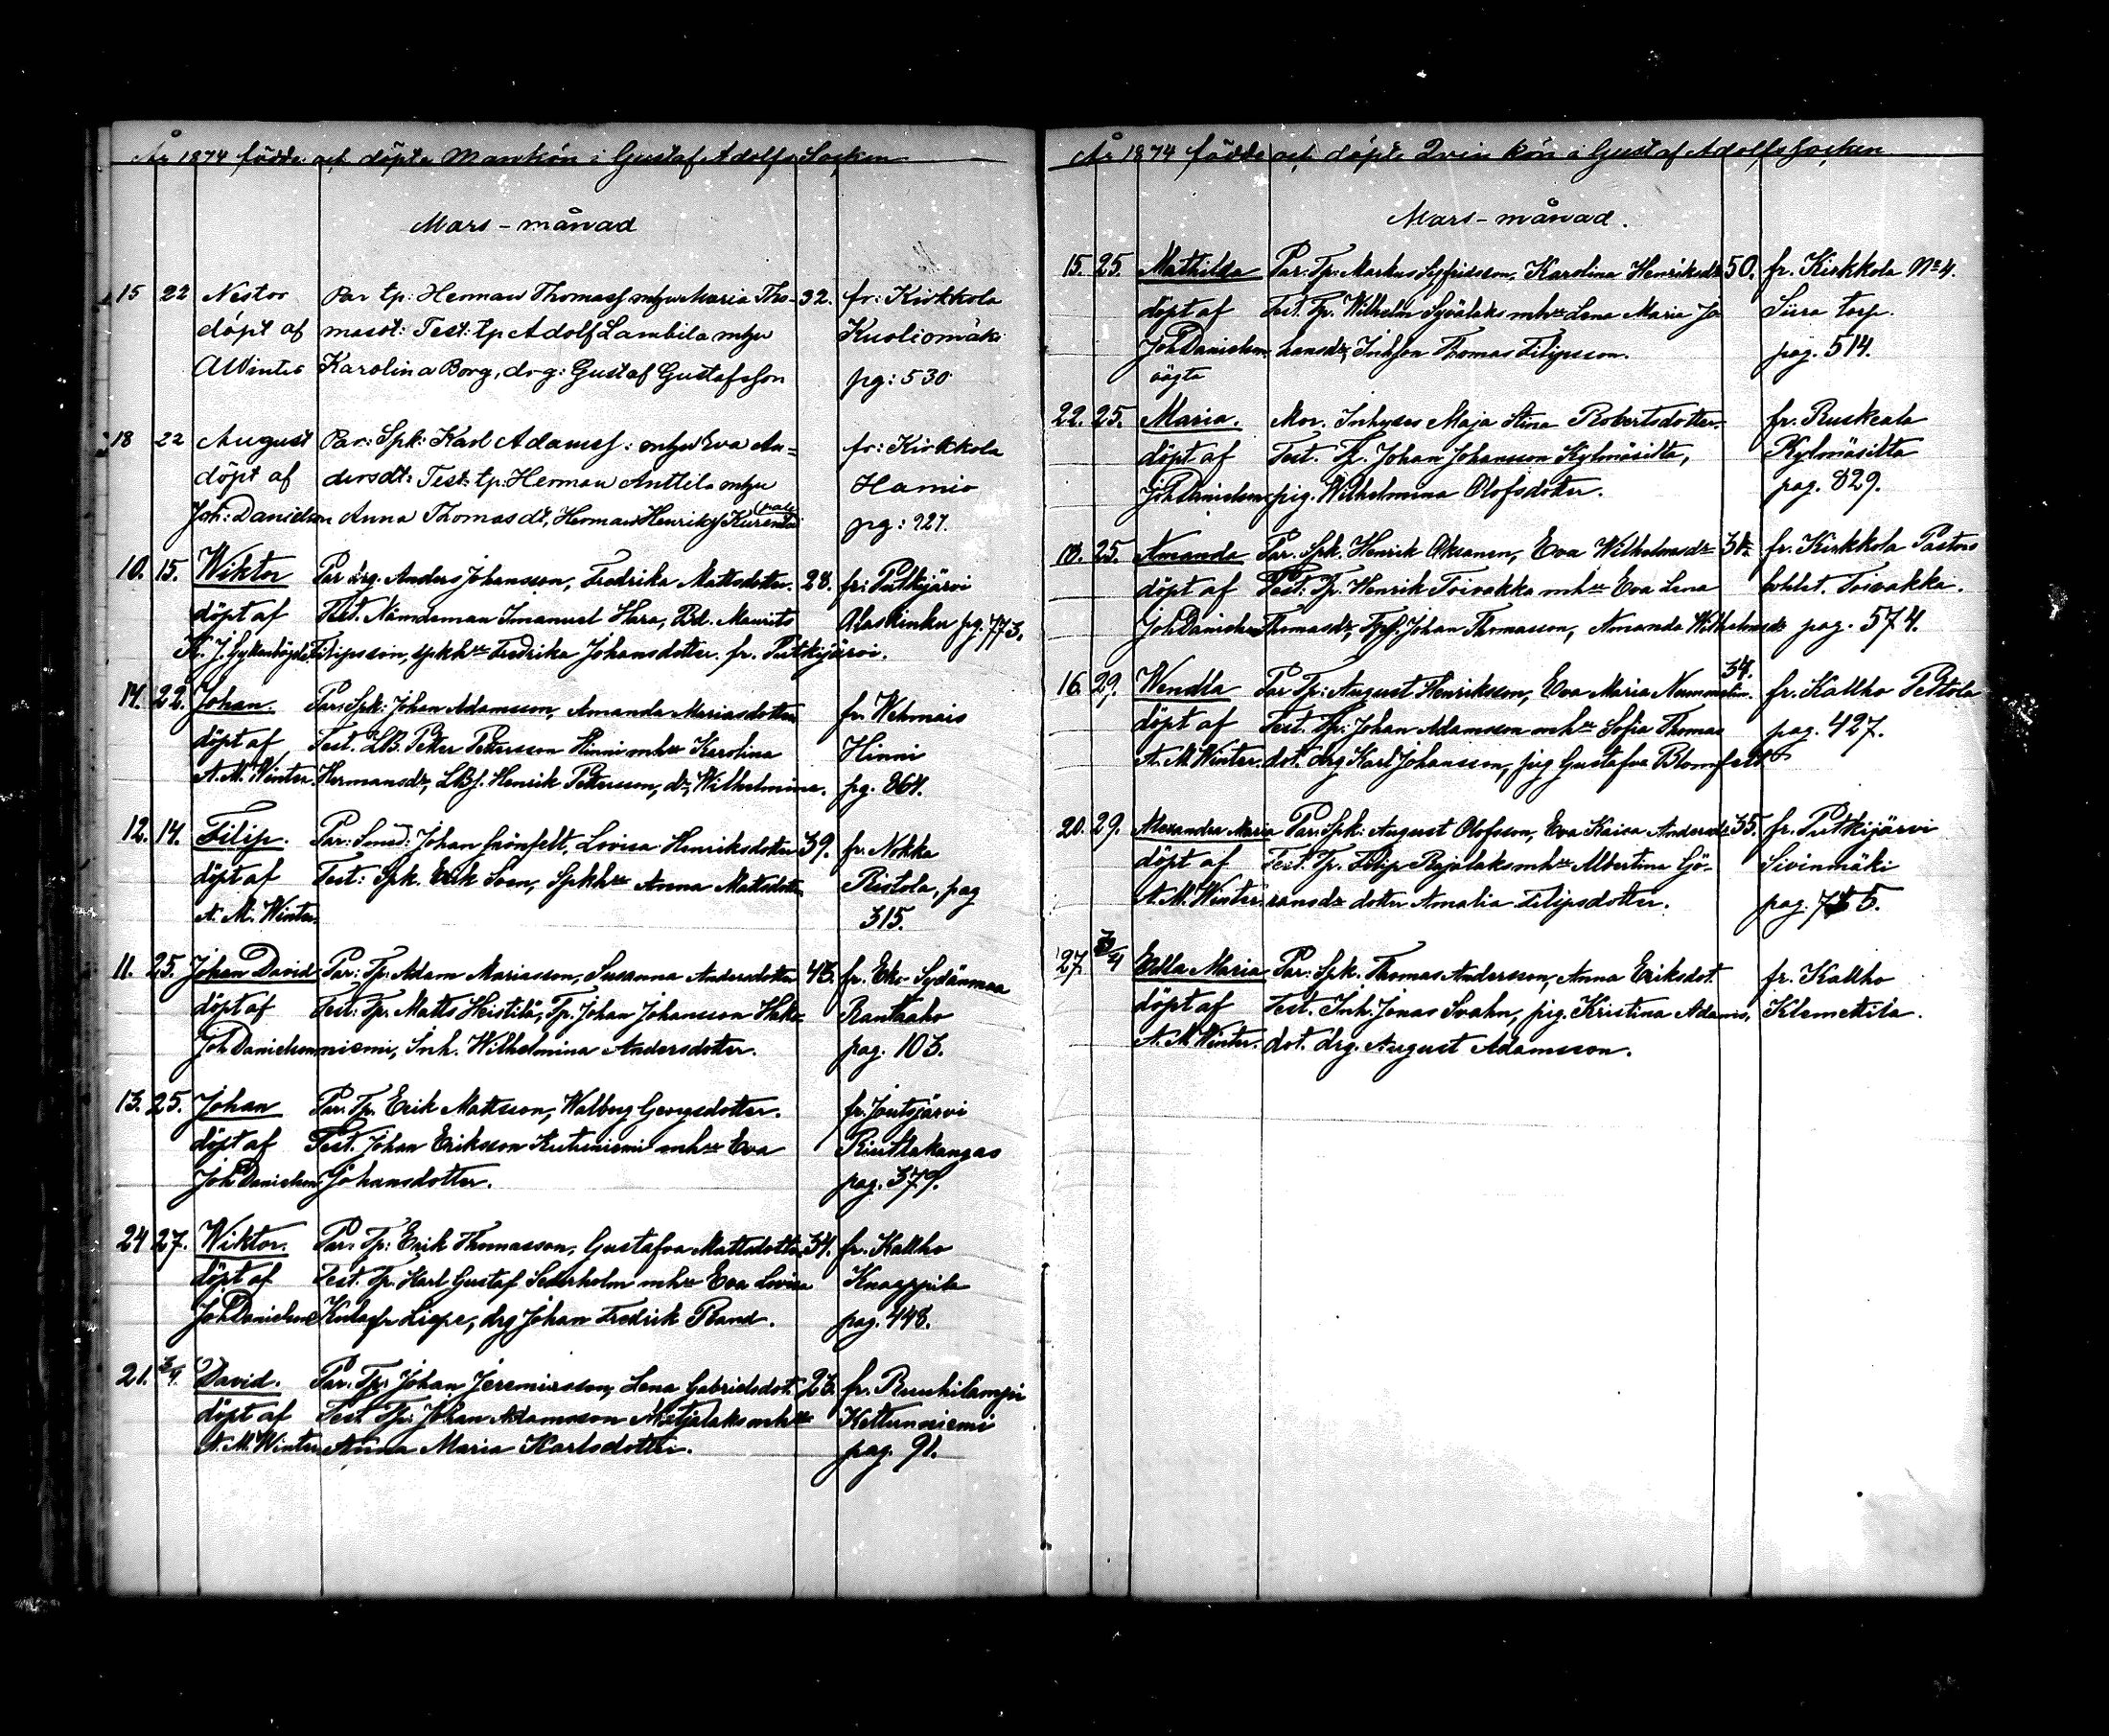 År 1874 födde och döpte Mankön i Gustaf Adolfs Socken
Mars-månad
15 22 Nestor Par tp: Herman Thomass mhu Maria Tho- 32. fr: Kirkkola
döpt af masdt: Test: tp Adolf Lambila mhu Kuoliomäki
AWinter Karolina Borg, drg: Gustaf Gustafsson pg: 530
18 22 August Par: Spk: Karl Adamss: mhu Eva An= fr: Kirkkola
döpt af dersdt: Test: tp: Herman Anttila mhu Hamio
Joh: Danielson Anna Thomasdt, Herman Henrikss pg: 927.
10. 15. Wiktor Par drg. Anders Johansson, Fredrika Mattsdotter. 28. fr. Putkijärvi
döpt af Test. Nämdeman Imanuel Hara, Bd. Maurits Alas Rinku pg. 773.
K. J. Filipsson, spkhu Fredrika Johansdotter. fr. Putkijärvi.
14. 22. Johan. Par: Spk: Johan Adamsson, Amanda Mariasdotter fr. Wehmais
döpt af Test. LB. Petter Pettersson Hinni mhu Karolina Hinni
A. M. Winter. Hermansdr, LBs. Henrik Pettersson, dr, Wilhelmina. pg. 864.
12. 14. Filip. Par: Smed: Johan Grönfelt, Lovisa Henriksdotter 39. fr. Nokka
döpt af Test: Spk. Erik Sven, Spkhu Anna Mattsdotter Ristola, pag
A. M. Winter. 315.
11. 25. Johan David Par: Tp. Adam Mariasson, Susanna Andersdotter 43. fr. Eko Sydänmaa
döpt af Test: Tp. Matts Heistilä, Tp. Johan Johansson Hake- Rantaaho
Joh Danielson niemi, Inh. Wilhelmina Andersdotter. pag. 103.
13. 25. Johan Par. Tp. Erik Mattsson, Walborg Georgsdotter. fr. Joutsjärvi
döpt af Test. Johan Eriksson Kutuniemi mhu Eva Riuttakangas
Joh Danielson Johansdotter. pag. 379.
24 27. Wiktor. Par. Tp: Erik Thomasson, Gustafva Mattsdotter 34. fr. Kalho
döpt af Test. Tp. Karl Gustaf Sederholm mhu Eva Lovisa Knaappila
Joh Danielson fr Liepe, drg Johan Fredrik Rand. pag. 448.
21. 3/4. David. Par. Tp: Johan Jeremiasson, Lena Gabrielsdot. 23. fr. Ruuhilampi
döpt af Test. Tp: Johan Adamsson mhu Kettunniemi
A. M. Winter Anna Maria Karlsdotter. pag. 91.
År 1874 födde och döpte Qvinkön i Gustaf Adolfs Socken
Mars-månad.
15. 25. Mathilda Par: Tp: Markus Sigfridsson, Karolina Henriksdr 50. fr. Kirkkola No 4.
döpt af Test. Tp. Wilhelm Syvälaks mhu Lena Maria Jo- Siira torp.
Joh Danielson hansdr, Inhson Thomas Filipsson. pag. 514.
oägta
22. 25. Maria. Mor. Inhyses Maja Stina Robertsdotter. fr. Ruskeala
döpt af Test. Tp. Johan Johansson Kylmäsilta, Kylmäsilta
Joh Danielson pig. Wilhelmina Olofsdotter. pag. 829.
18. 25. Amanda Par. Spk. Henrik Oksanen, Eva Wilhelmsdr fr. Kirkkola Pastors
döpt af Test: Tp. Henrik Toivakka mhu Eva Lena bohlst. Toivakka.
Joh Danielson Thomasdr, Johan Thomasson, Amanda Wilhelmsdr pag. 574.
16. 29. Wendla Par Tp: August Henriksson, Eva Maria Nummelin. 34. fr. Kalho Pettola
döpt af Test. Tp: Johan Adamsson mhu Sofia Thomas pag. 427.
A. M. Winter. dot. drg Karl Johansson, pig Gustafva Blomfelt
20. 29. Alexandra Maria Par: Spk: August Olofsson, Eva Kaisa Andersdr 35. fr. Putkijärvi
döpt af Test. Tp. Filip Rajalaks mhu Albertina Gö- Sivinmäki
A. M. Winter. ransdr dotter Amalia Filipsdotter. pag.
27 3/4 Edla Maria Par: Spk. Thomas Andersson, Anna Eriksdot. fr. Kalho
döpt af Test. Inh. Jonas Svahn, pig. Kristina Adams, Klemettila.
A. M. Winter. dot. drg. August Adamsson.